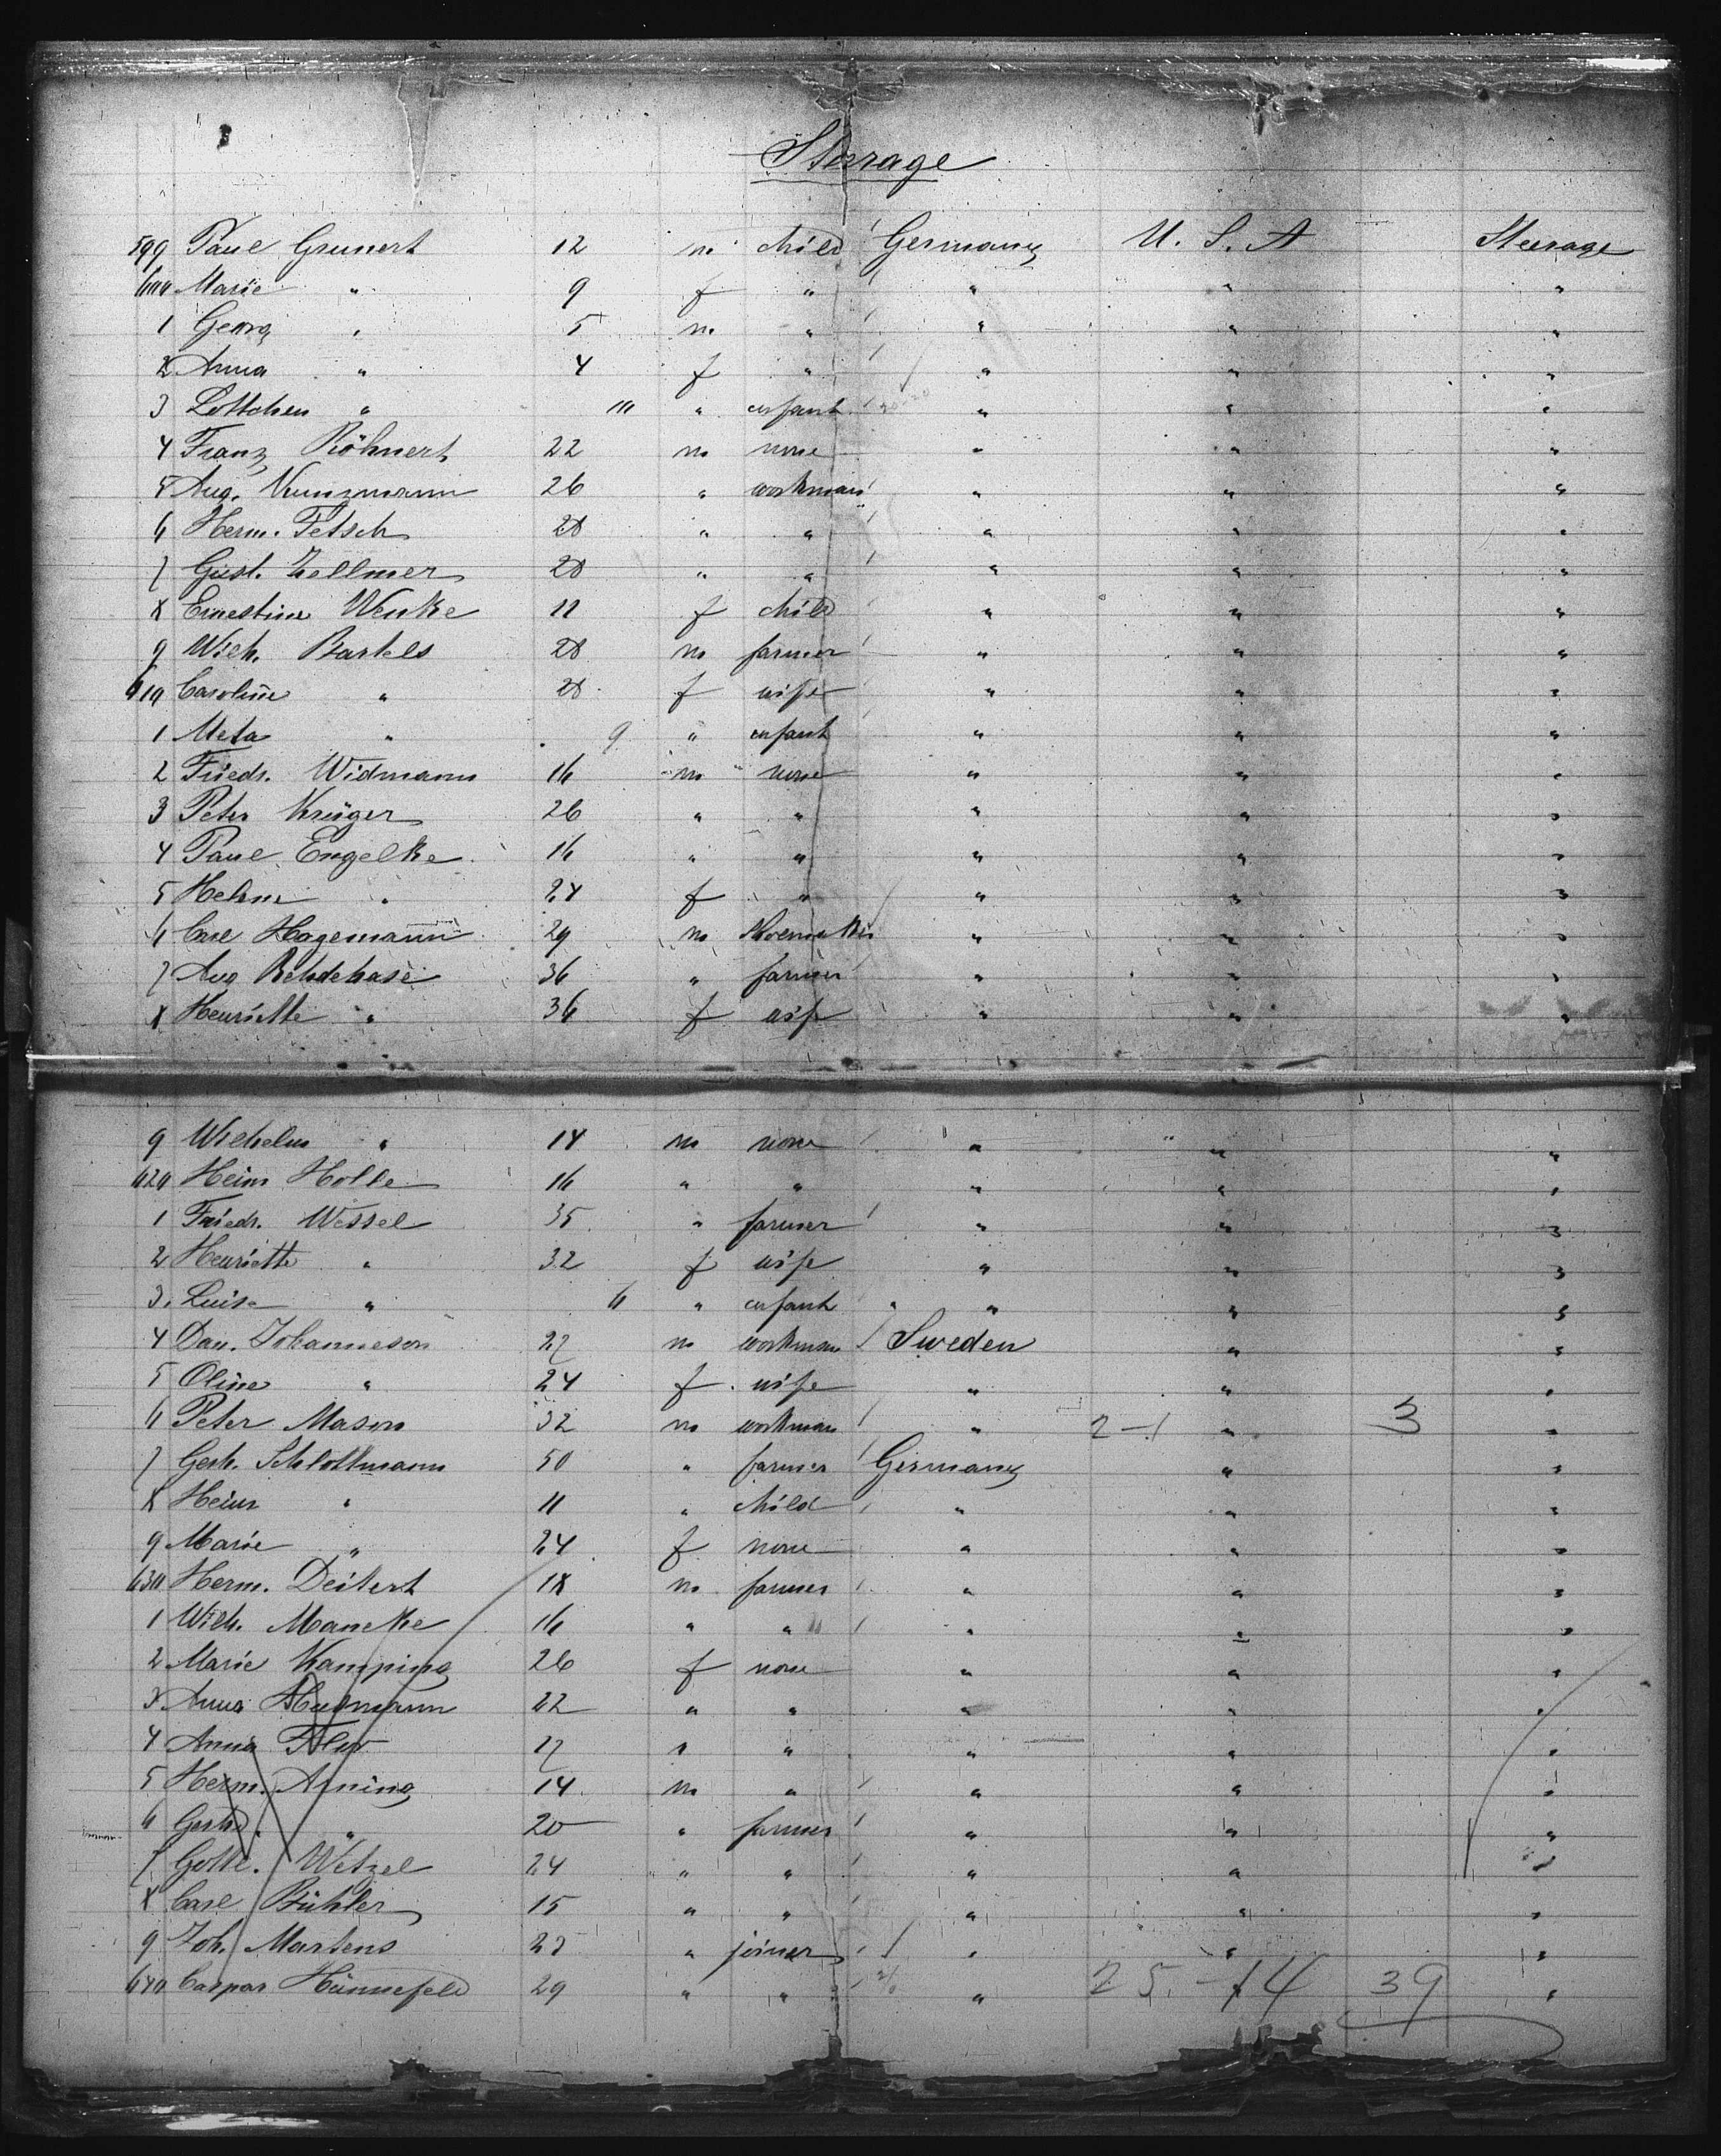 Steerage
599 Paul Grunert 12 m child Germany U. S. A Steerage
600 Marie " 9 f " " " "
1 Georg " 5 m " " " "
2 Anna " 4 f " " " "
3 Lottchen " 10 " infant " " "
4 Franz Röhnert 22 m none " " "
5 Aug. Kunzmann 26 " workman " " "
6 Herm. Fetsch 28 " " " " "
7 Gust. Zellmer 28 " " " " "
8 Ernestine Wenke 11 f child " " "
9 Wilh. Bartels 28 m farmer " " "
610 Caroline " 28 f wife " " "
1 Meta " 9 " infant " " "
2 Friedr. Widmann 16 m none " " "
3 Peter Krüger 26 " " " " "
4 Paul Engelke 16 " " " " "
5 Helene " 24 f " " " "
6 Carl Hagemann 29 m shoemaker " " "
7 Aug Rehdehase 36 " farmer " " "
8 Henriette " 36 f wife " " "
9 Wilhelm " 14 m none " " "
620 Heinr Holle 16 " " " " "
1 Friedr. Wessel 35 " farmer " " "
2 Henriette " 32 f wife " " "
3 Luise " 6 " infant " " "
4 Dan. Johanneson 27 m workman Sweden " "
5 Oline " 24 f wife " " "
6 Peter Mason 32 m workman " 2-1 " 3 "
7 Gerh. Schlottmann 50 " farmer Germany " "
8 Heinr " 11 " child " " "
9 Marie " 24 f none " " "
630 Herm. Deitert 18 m farmer " " "
1 Wilh. Mancke 16 " " " " "
2 Marie Kamping 26 f none " " "
3 Anna 22 " " " " "
4 Anna 27 " " " " "
5 Herm. Arning 14 m " " " "
6 Gerhd. " 20 " farmer " " "
7 Gottl. Wetzel 24 " " " " "
8 Carl Bühler 15 " " " " "
9 Joh. Martens 23 " joiner " " "
640 Caspar Hünnefeld 29 " " " 25-14 39 "